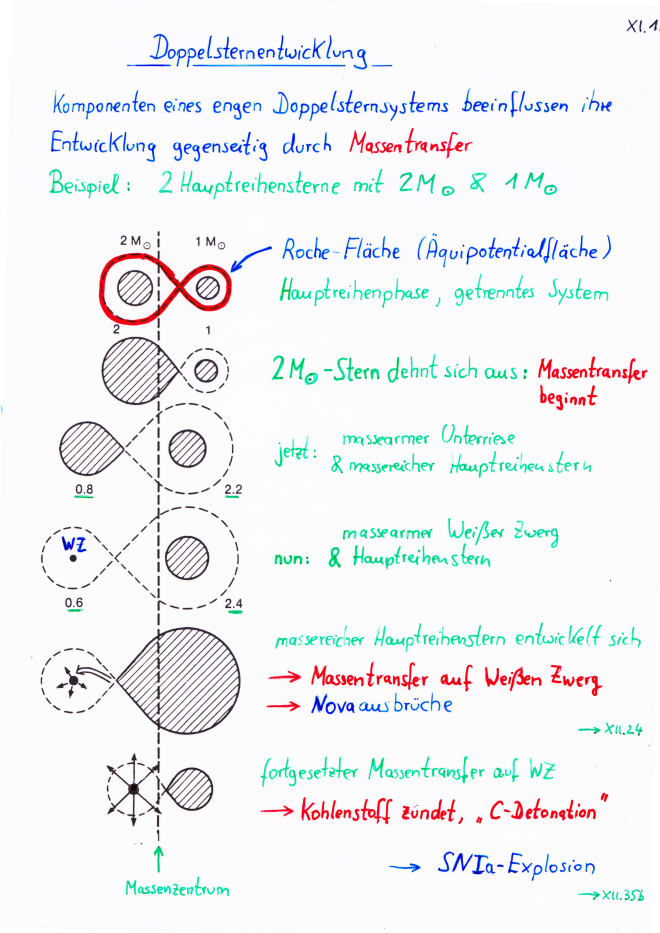 XI.1
Doppelsternentwicklung
Komponenten eines engen Doppelsternsystems beeinflussen ihre
Entwicklung gegenseitig durch Massentransfer
Beispiel: 2 Hauptreihensterne mit 2M⊙ & 1M⊙
2 M⊙ 1 M⊙
Roche-Fläche (Äquipotentialfläche)
Hauptreihenphase, getrenntes System
2 1
2M⊙-Stern dehnt sich aus: Massentransfer
beginnt
massearmer Unterriese
jetzt: & massereicher Hauptreihenstern
0.8 2.2
massearmer Weißer Zwerg
WZ
nun: & Hauptreihenstern
0.6 2.4
massereicher Hauptreihenstern entwickelt sich
→ Massentransfer auf Weißen Zwerg
→ Novaausbrüche
→ XII.24
fortgesetzter Massentransfer auf WZ
→ Kohlenstoff zündet, „C-Detonation"
→ SNIa-Explosion
Massenzentrum
→ XII.35b